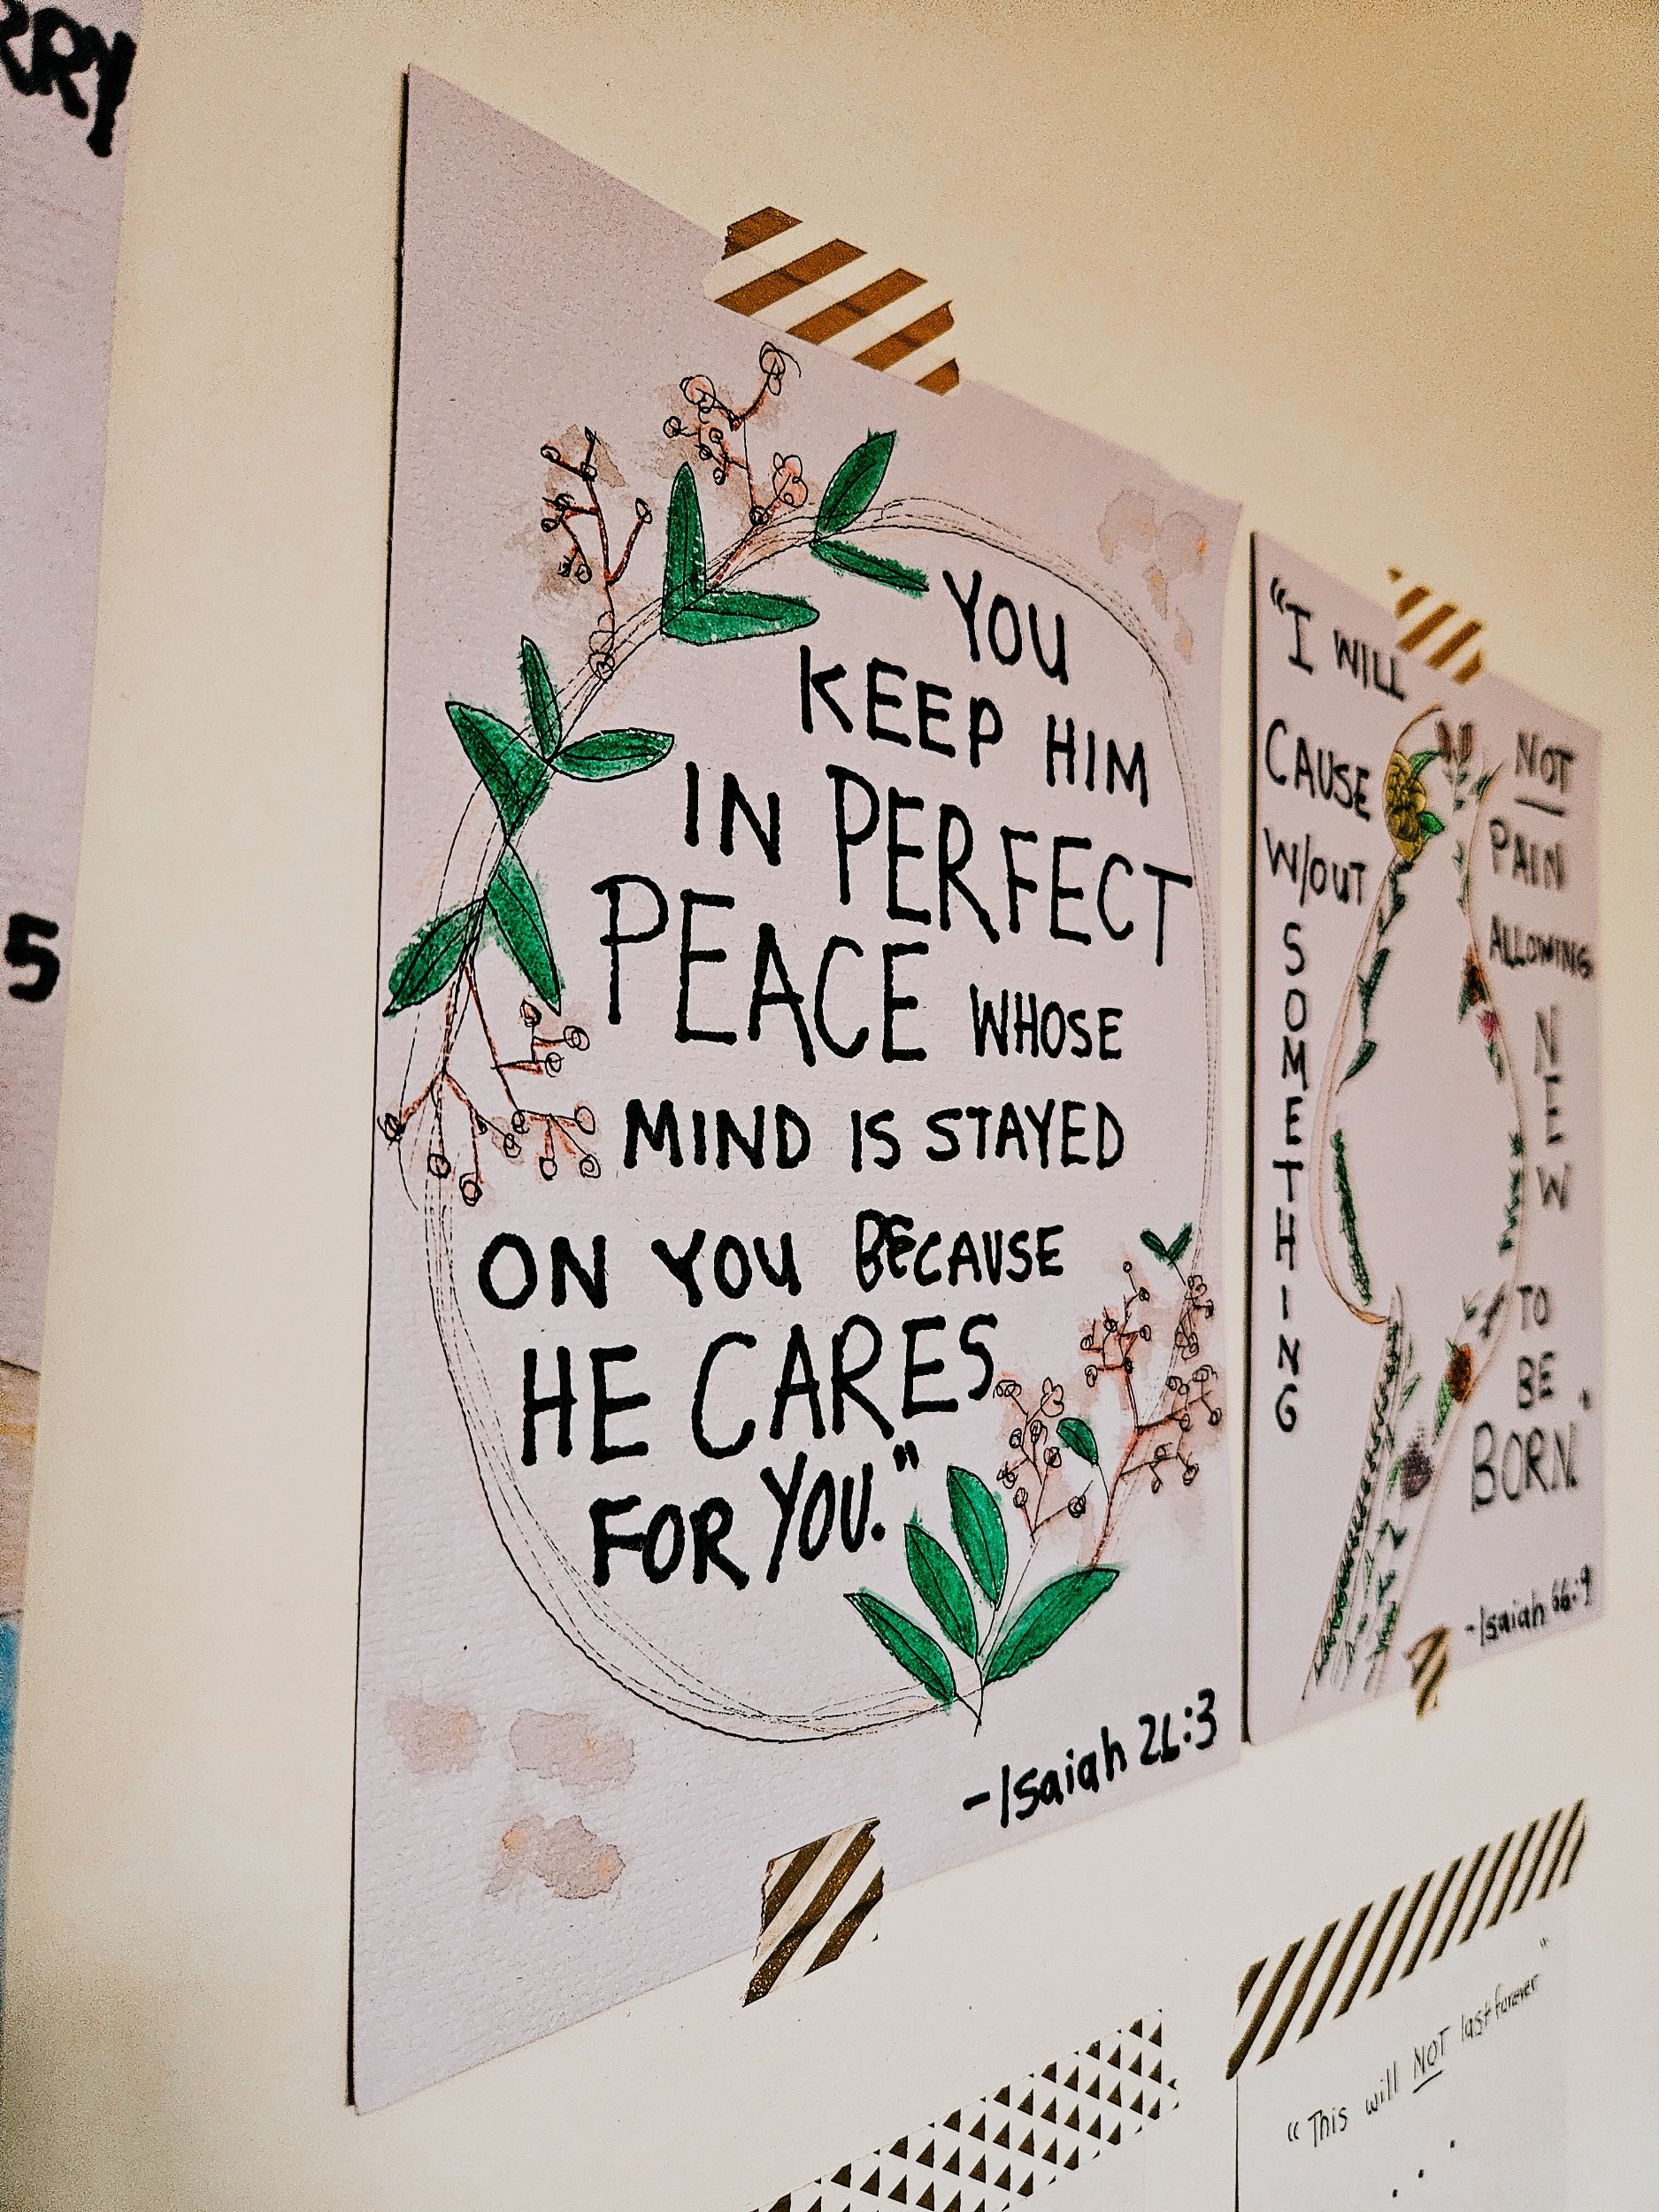 RRY
5
YOU
KEEP HIM
IN PERFECT
PEACE WHOSE
MIND IS STAYED
ON YOU BECAUSE
HE CARES
FOR YOU."
-Isaiah 26:3
"I WILL NOT
CAUSE PAIN
W/OUT ALLOWING
SOMETHING
NEW
TO
BE
BORN."
-Isaiah 66:9
"This will NOT last forever"